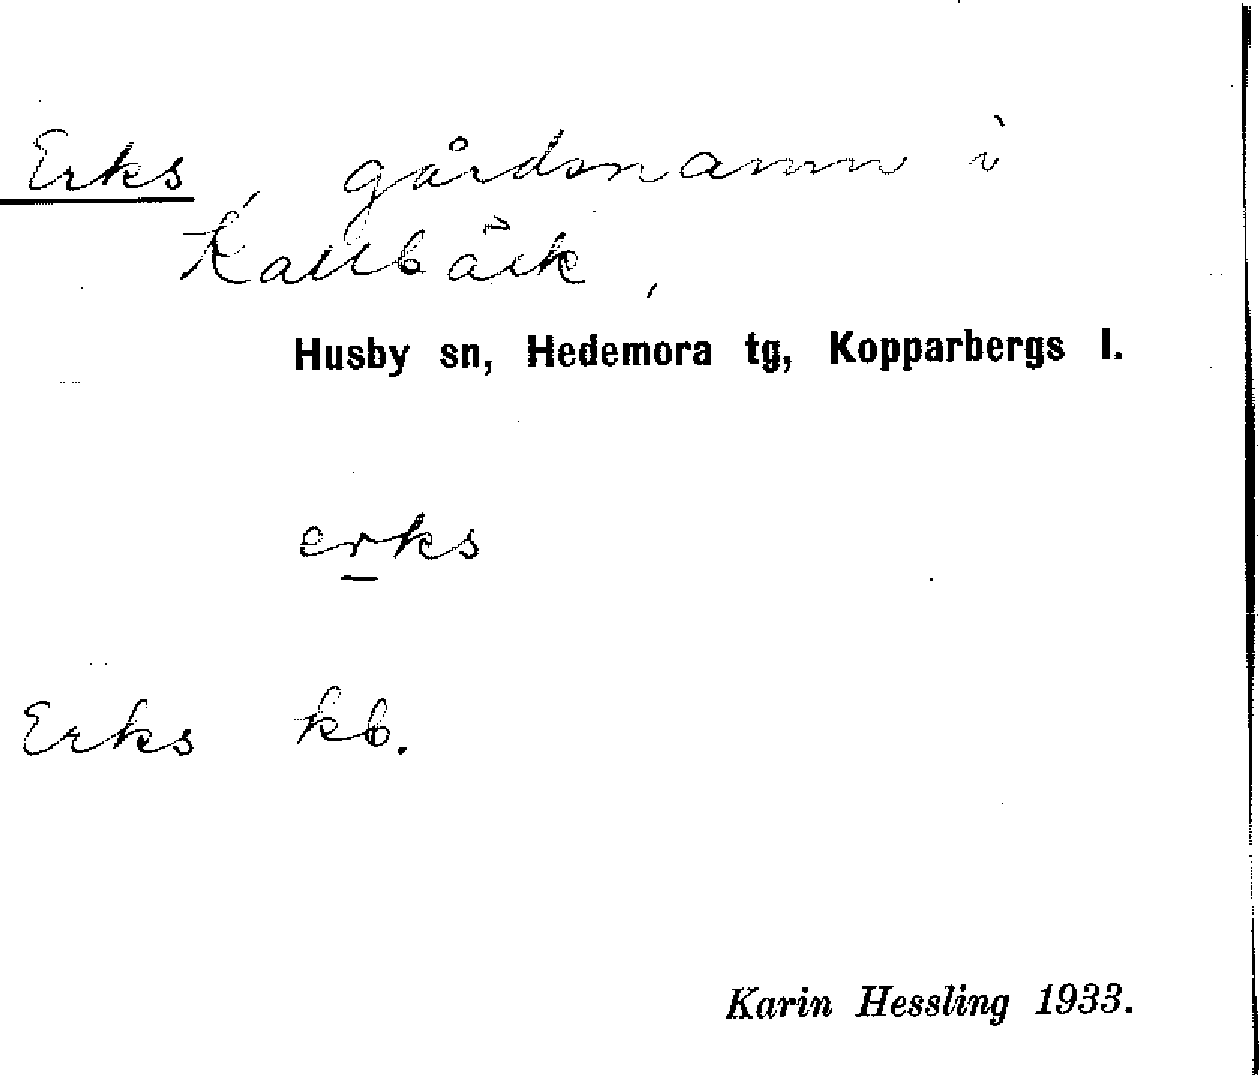 Erks, gårdsnamn i
Kallbäck,
Husby sn, Hedemora tg, Kopparbergs l.
erks
Erks kb.
Karin Hessling 1933.